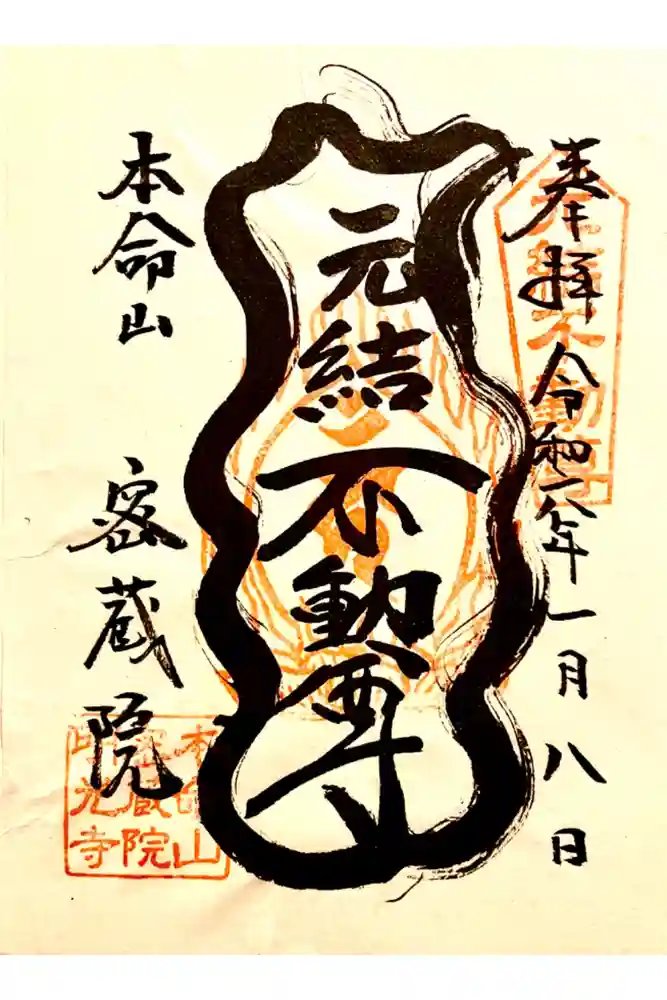 奉拝 令和六年一月八日
元結不動尊
本命山 密蔵院
元結不動尊
本命山
密蔵院
光寺